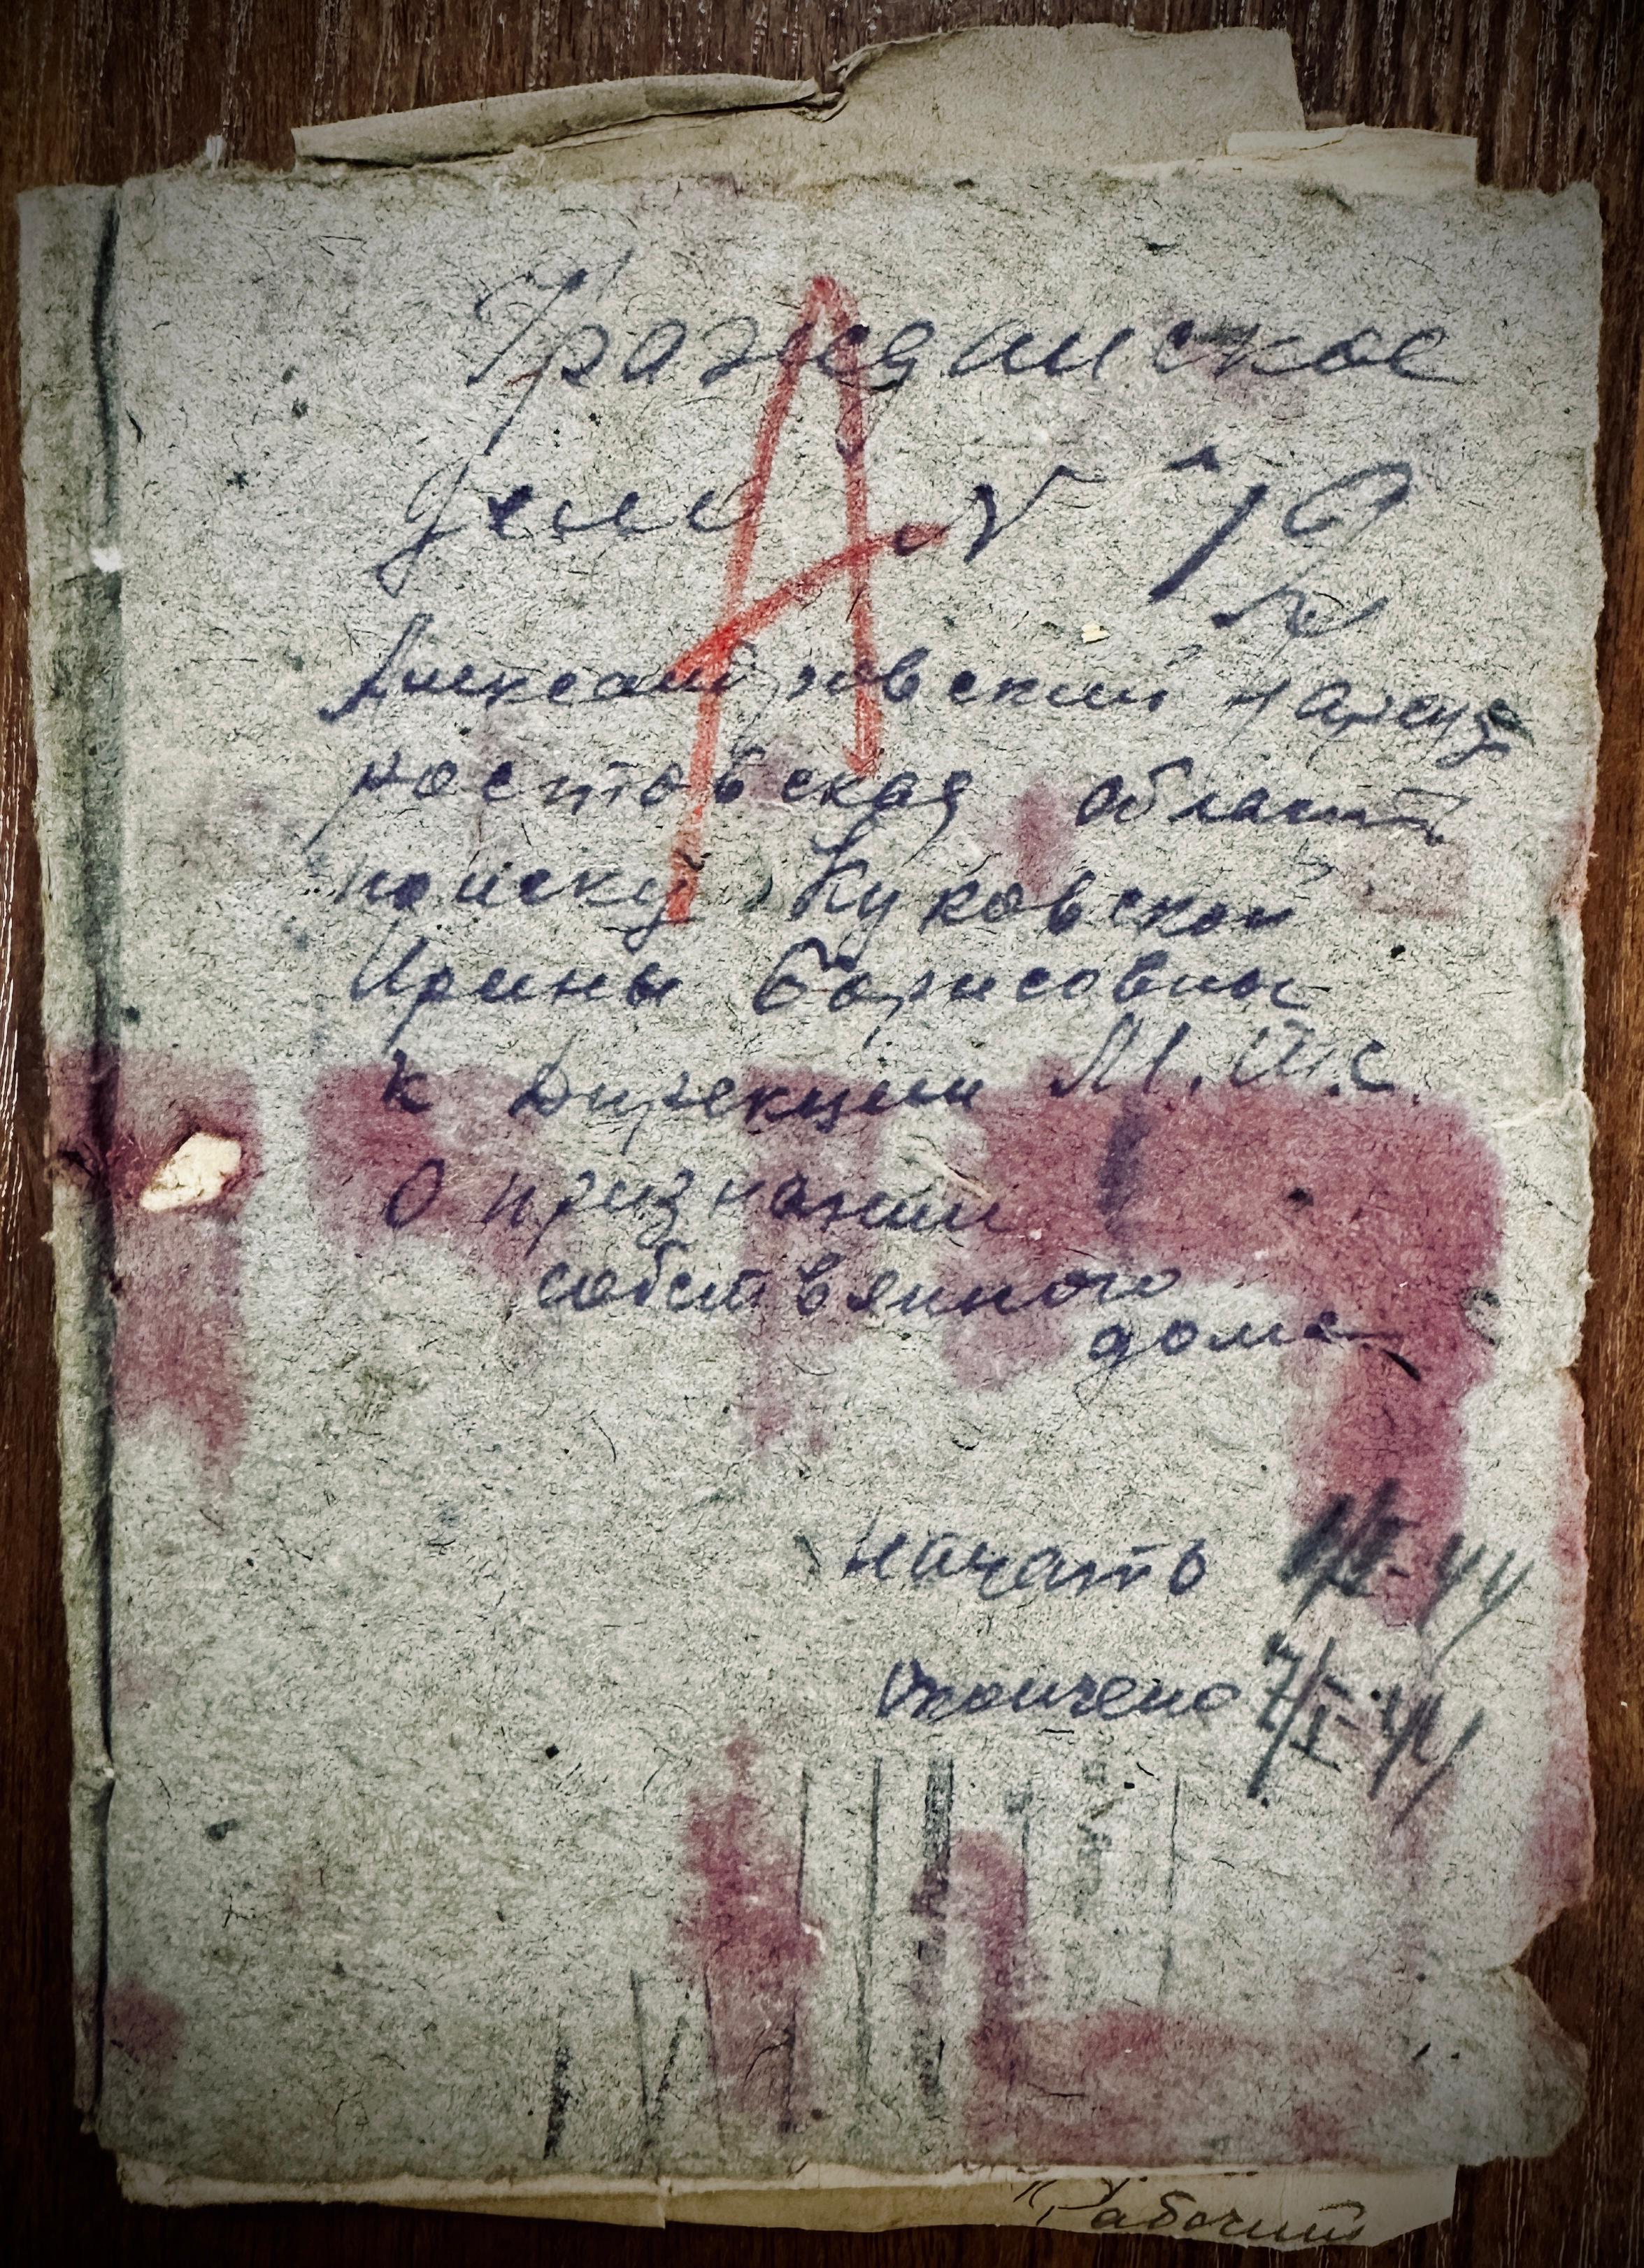 А
Гражданское
Дело №
Александровский нарсуд
ростовская область
по иску Куковской
Ирины Борисовны
к Дирекции М.Т.С.
О признании
собственного
дома
начать -44
Окончено 7/I-44
Рабочий